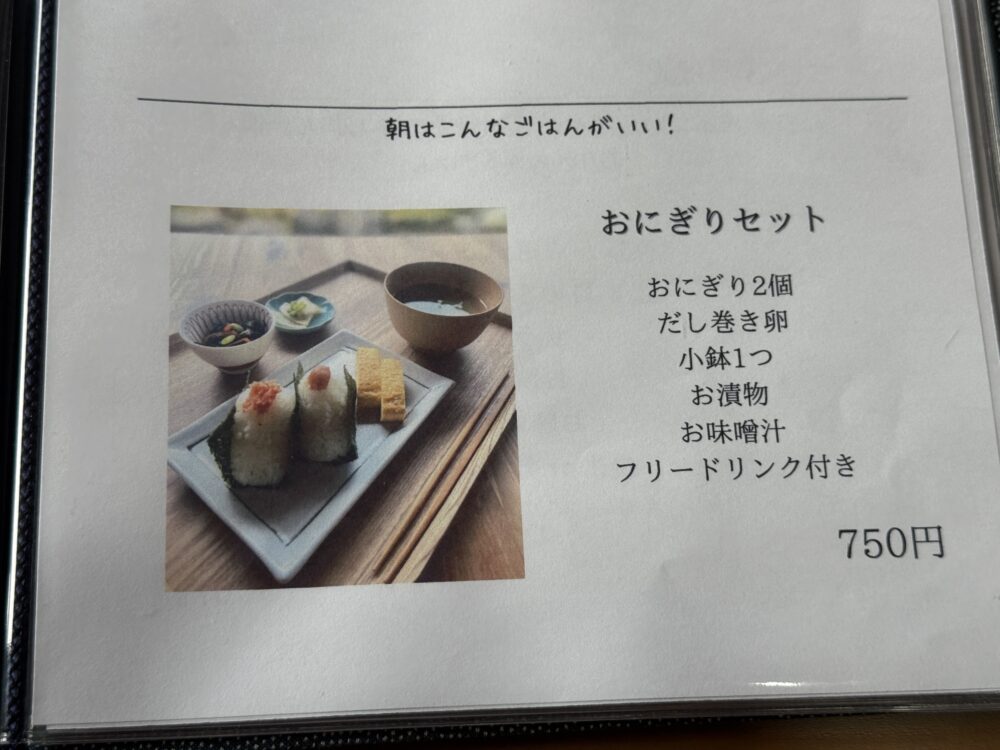 朝はこんなごはんがいい！
おにぎりセット
おにぎり2個
だし巻き卵
小鉢1つ
お漬物
お味噌汁
フリードリンク付き
750円